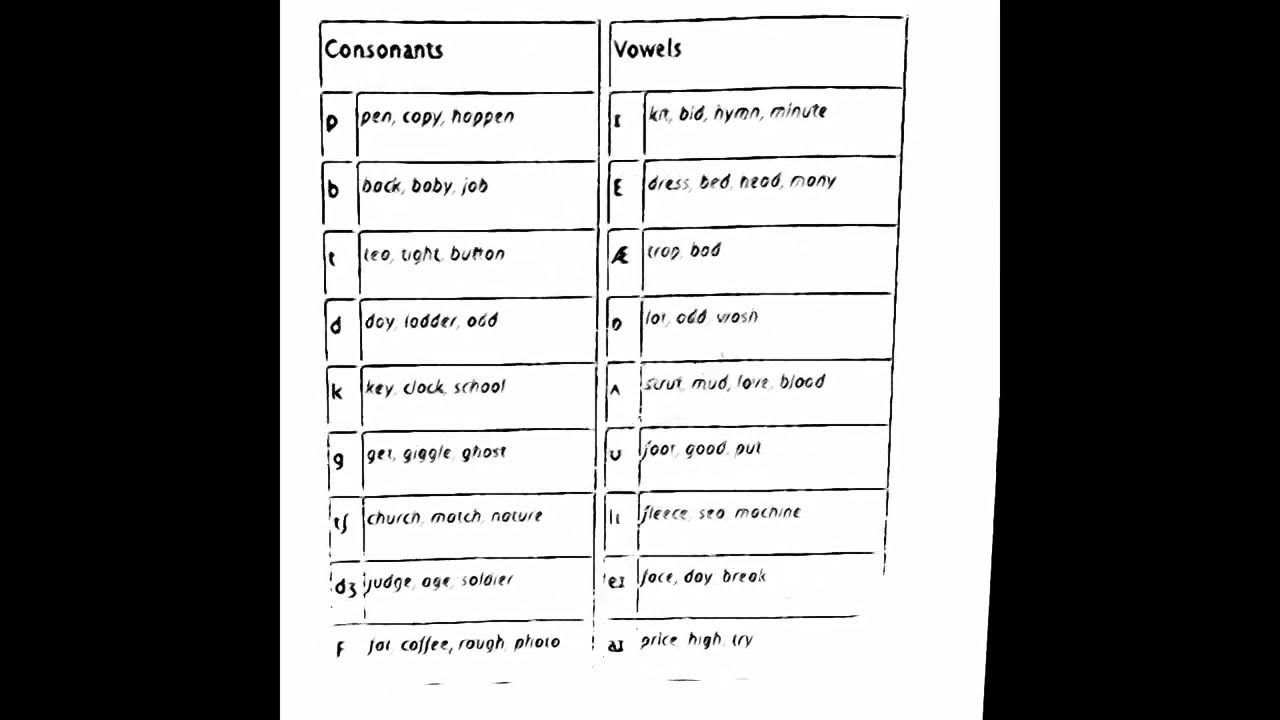 Consonants Vowels
p pen, copy, happen ɪ kit, bid, hymn, minute
b back, baby, job E dress, bed, head, many
t tea, tight, button Æ trap, bad
d day, ladder, odd ɒ lot, odd, wash
k key, clock, school ʌ strut, mud, love, blood
g get, giggle, ghost ʊ foot, good, put
tʃ church, match, nature fleece, sea, machine
dʒ judge, age, soldier eɪ face, day, break
F fat, coffee, rough, photo aɪ price, high, try